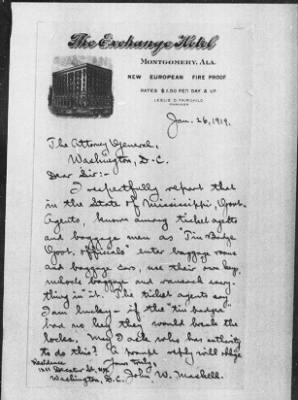 The Exchange Hotel
Montgomery, Ala.
NEW EUROPEAN FIRE PROOF
RATES $1.50 PER DAY & UP
LESLIE D. FAIRCHILD
MANAGER
Jan. 26, 1919.
The Attorney General,
Washington, D.C.
Dear Sir:-
I respectfully report that
in the State of Mississippi, Govt.
Agents, known among ticket agents
and baggage men as "Tin Badge
Govt. officials" enter baggage rooms
and baggage cars, use their own key,
unlock baggage and ransack every-
thing in it. The ticket agents say
I am lucky - if the "tin badge"
had no key they would break the
locks. May I ask who has authority
to do this? A prompt reply will oblige
Yours truly,
Residence
Decatur St. N.W.
Washington, D.C. John W.